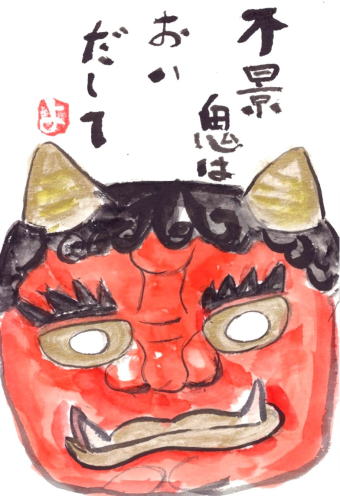 不景
鬼は
おい
だして
よ